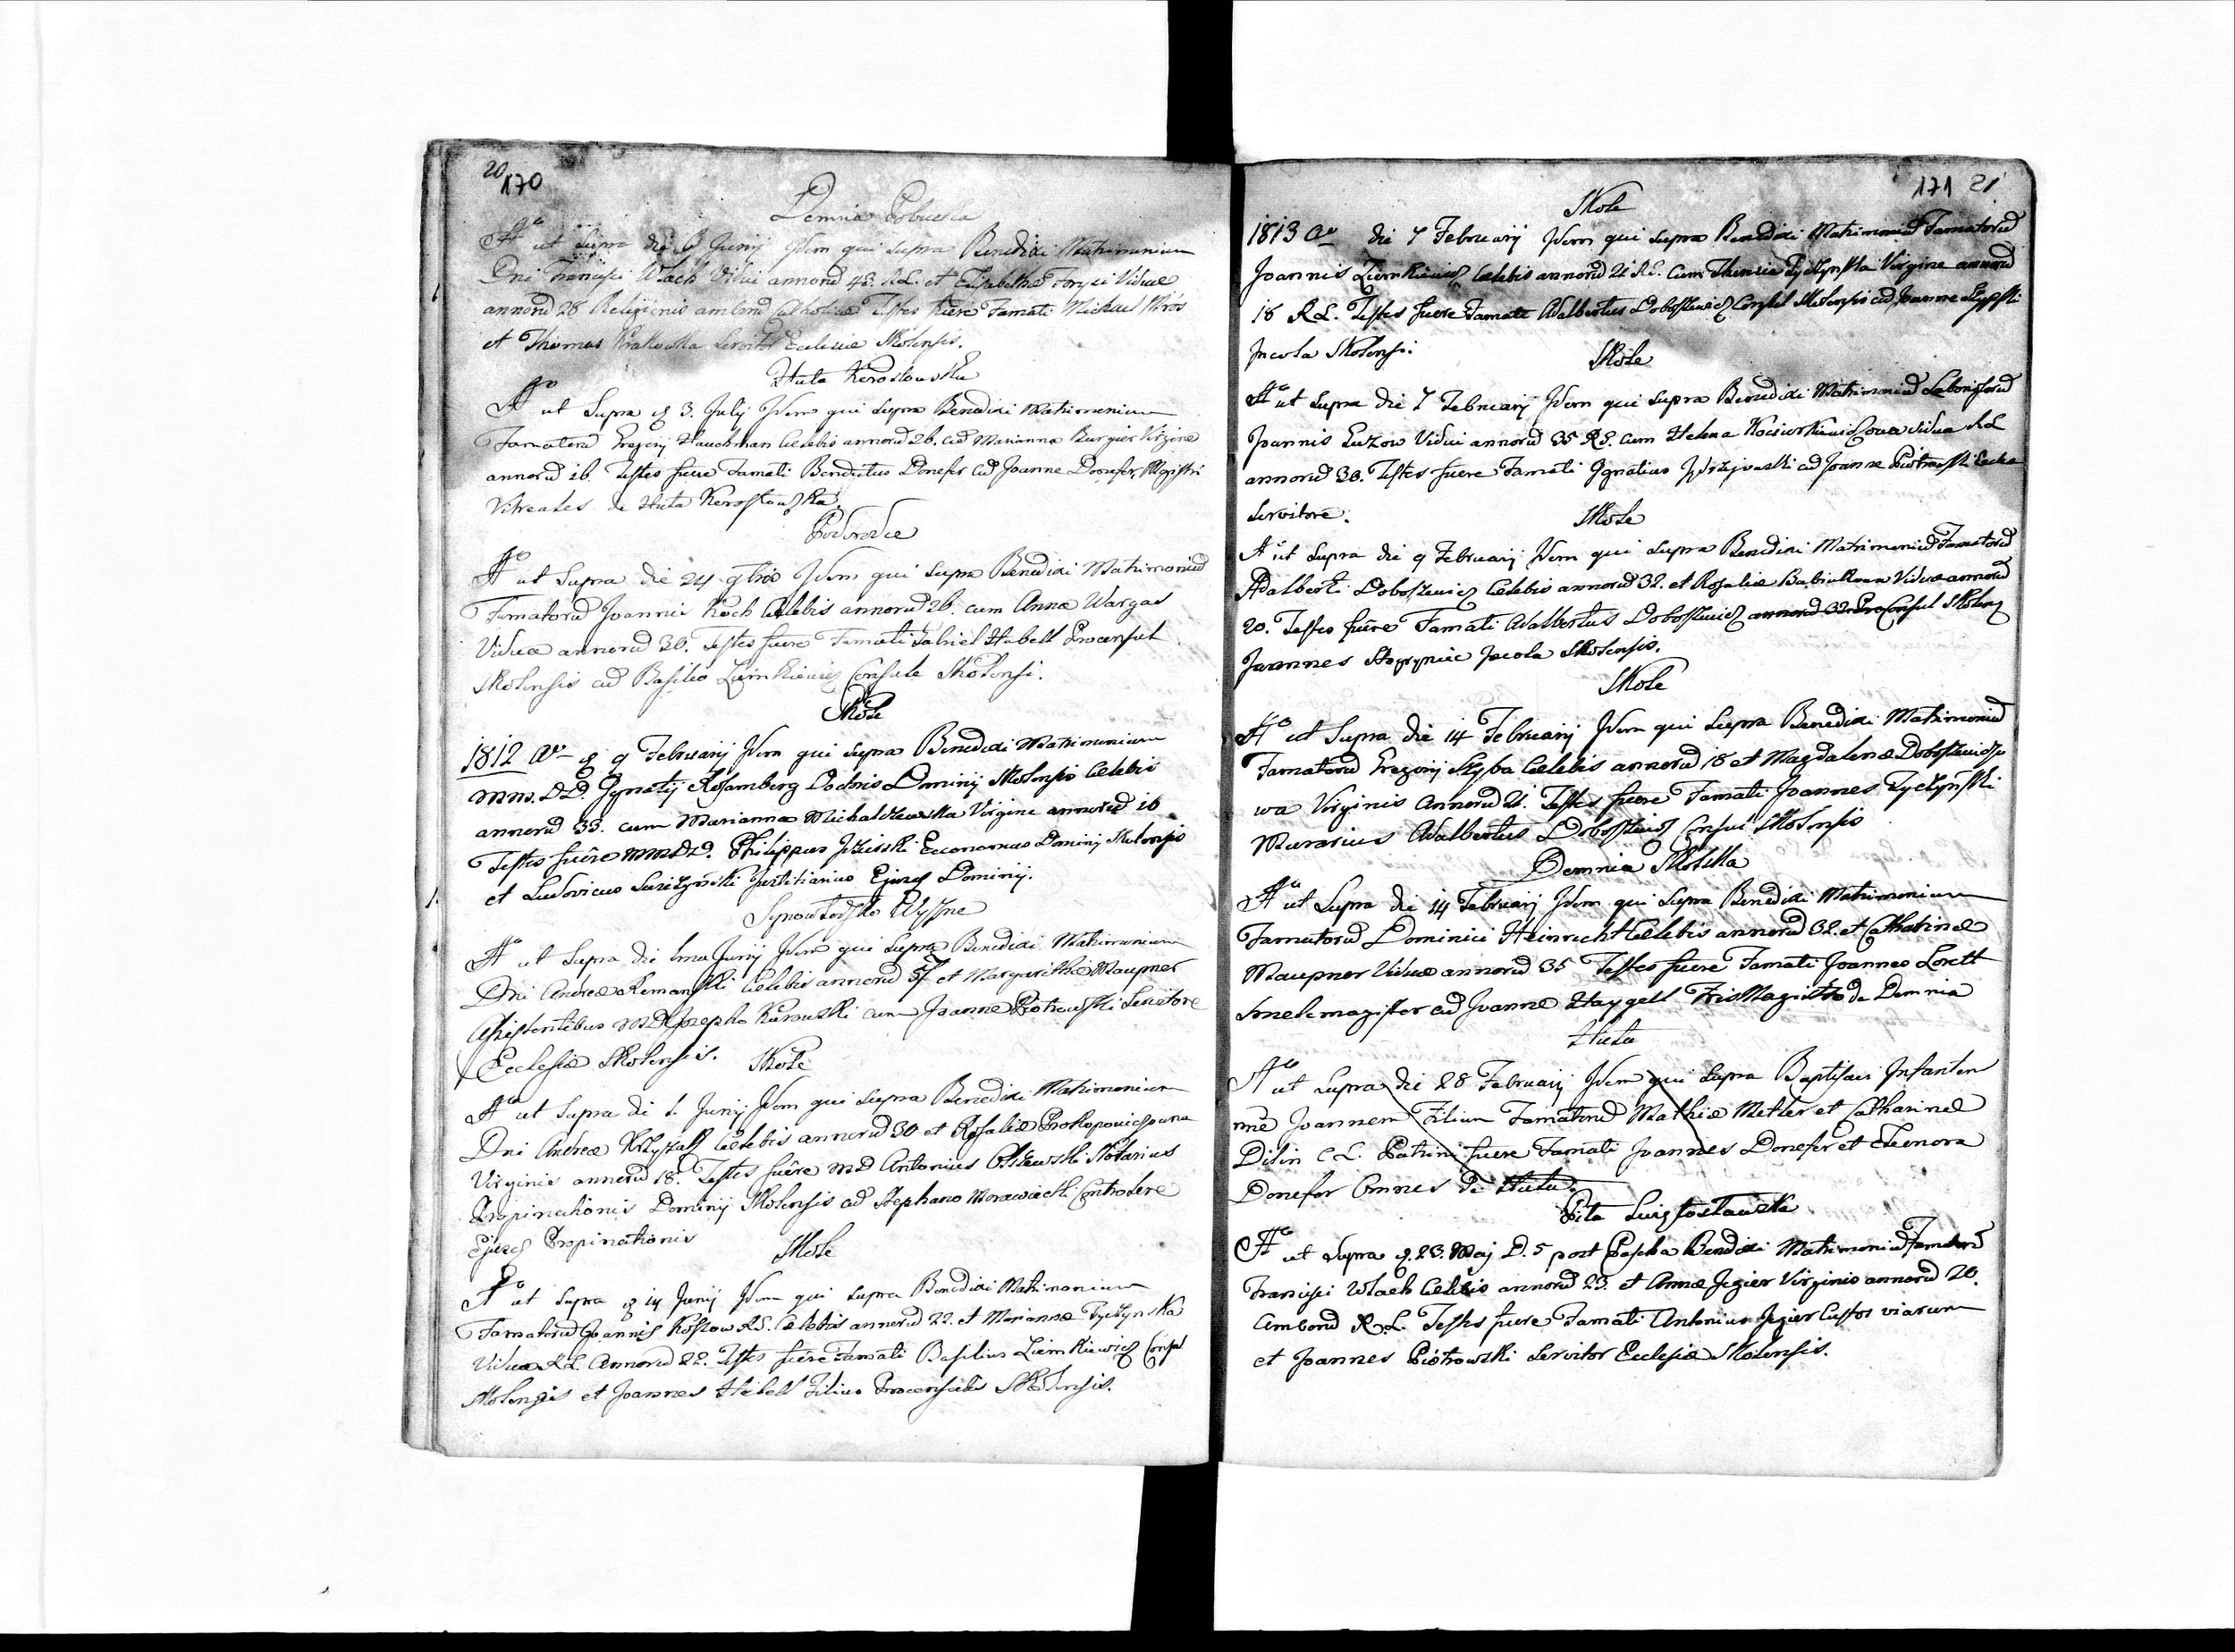 20
170
Demnia Pobucka
Ao ut Supra die 6 Junij Idem qui supra Benedixi Matrimonium
Dni Francisci Wlach Vidui annorū 43. R.L. et Elisabethæ Viduæ
annorū 28 Religionis amborū Catholicæ Testes fuere Famati Michael Mróz
et Thomas Krakowka Servitor Ecclesiæ Skolensis.
Huta Korostowska
Ao ut Supra d 3. Julij Idem qui supra Benedixi Matrimonium
Famatorū Gregorij Hauchman Cælebis annorū 26. cū Marianna Burgier Virgine
annorū 16. Testes fuere Famati Benedictus Donefer cū Joanne Donefer Magistri
Vitreales de Huta Korostowska.
Podrodce
Ao ut Supra die 24 9bris Idem qui supra Benedixi Matrimoniū
Famatorū Joannis Koch Cælebis annorū 26. cum Anna Wargas
Viduæ annorū 30. Testes fuere Famati Gabriel Habell Proconsul
Skolensis cū Basilio Ziemkiewicz Consule Skolensi.
Skole
1812 Ao d 9 Februarij Idem qui supra Benedixi Matrimonium
Mm. DD. Ignatij Rosamberg Doctoris Dominij Skolensis Cælebis
annorū 33. cum Marianna Michalczewska Virgine annorū 16
Testes fuêre MmDD. Philippus Economus Dominij Skolensis
et Ludovicus Justitiarius Ejusq Dominij.
Synowudzko Wyzne
Ao ut Supra die 1ma Junij Idem qui Supra Benedixi Matrimonium
Dni Andreæ Remanski Cælebis annorū 57 et Margarithæ Maupner
Assistentibus MD Josepho Kurowski cum Joanne Piotrowski Servitore
Ecclesiæ Skolensis. Skole
Ao ut Supra die 1. Junij Idem qui supra Benedixi Matrimonium
Dni Andreæ Krzyzak Cælebis annorū 30 et Rosaliæ Prokopowiczowna
Virginis annorū 18. Testes fuêre MD Antonius Olszewski Notarius
Propinationis Dominij Skolensis cū Stephano Morawiecki Controlere
Ejusq Propinationis Skole
Ao ut Supra d 14 Junij Idem qui supra Benedixi Matrimonium
Famatorū Joannis Koszow R.L. Cælebis annorū 22. et Mariannæ Tyczynska
Viduæ R.L. Annorū 22. Testes fuêre Famati Basilius Ziemkiewicz Consul
Skolensis et Joannes Habell Filius Proconsulis Skolensis.
171 21
Skole
1813 Ao die 7 Februarij Idem qui supra Benedixi Matrimoniū Famatorū
Joannis Ziemkiewicz Cælebis annorū 21 R.L. cum Theresia Tyczynska Virgine annorū
18 R.L. Testes fuere Famati Adalbertus Doboszewicz Consul Skolensis cū Joanne
Incola Skolensi. Skole
Ao ut Supra die 7 Februarij Idem qui supra Benedixi Matrimoniū Laboriosorū
Joannis Luzow Vidui annorū 35 R.L. cum Helena Vidua R.L.
annorū 30. Testes fuere Famati Ignatius cū Joanne Piotrowski Eccl.æ
Servitore. Skole
Ao ut Supra die 9 Februarij Idem qui supra Benedixi Matrimoniū Famatorū
Adalberti Doboszewicz Cælebis annorū 32. et Rosaliæ Babiakowa Viduæ annorū
20. Testes fuêre Famati Adalbertus Doboszewicz annorū 32. ProConsul Skolensis
Joannes Incola Skolensis.
Skole
Ao ut Supra die 14 Februarij Idem qui supra Benedixi Matrimoniū
Famatorū Gregorij Skyba Cælebis annorū 18 et Magdalenæ Doboszewiczo
wa Virginis Annorū 21. Testes fuere Famati Joannes Tyczynski
Murarius Adalbertus Doboszewicz Consul Skolensis
Demnia Skolska
Ao ut Supra die 14 Februarij Idem qui supra Benedixi Matrimonium
Famatorū Dominici Heinricht Cælebis annorū 32. et Catharinæ
Maupner Viduæ annorū 35 Testes fuere Famati Joannes Lorett
Smelcmagister cū Joanne Haygell de Demnia
Huta
Ao ut Supra die 28 Februarij Idem qui supra Baptisavi Infantem
nne Joannem Filium Famatorū Mathiæ Metler et Catharinæ
Dilin C.L. Patrini fuere Famati Joannes Donefer et Eleonora
Donefer Omnes de Huta.
Piła Swiętosławska
Ao ut Supra d. 23. Maj D. 5 post Pascha Benedixi Matrimoniū Famatorū
Francisci Wlach Cælebis annorū 23. et Annæ Jegier Virginis annorū 20.
Amborū R.L. Testes fuere Famati Antonius Jegier Custos viarum
et Joannes Piotrowski Servitor Ecclesiæ Skolensis.